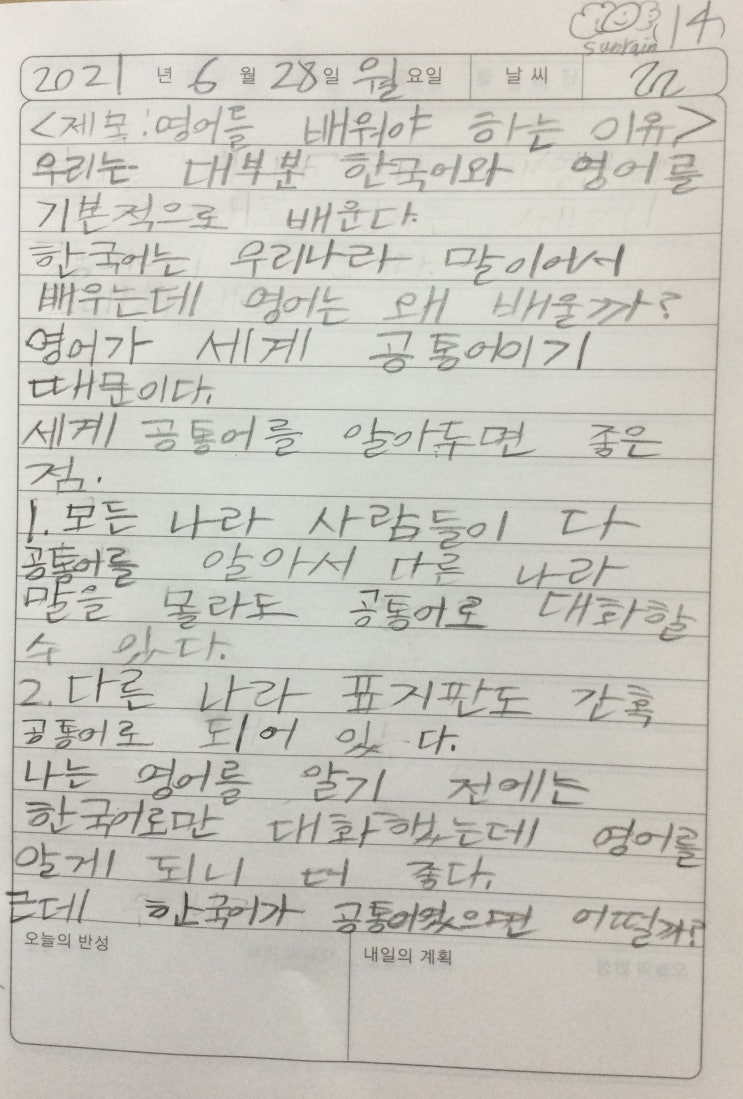 sunrain 14
2021 년 6 월 28 일 월 요일 날 씨
<제목:영어를 배워야 하는 이유>
우리는 대부분 한국어와 영어를
기본적으로 배운다.
한국어는 우리나라 말이어서
배우는데 영어는 왜 배울까?
영어가 세계 공통어이기
때문이다.
세계 공통어를 알아두면 좋은
점.
1. 모든 나라 사람들이 다
공통어를 알아서 다른 나라
말을 몰라도 공통어로 대화할
수 있다.
2. 다른 나라 표지판도 간혹
공통어로 되어 있다.
나는 영어를 알기 전에는
한국어로만 대화했는데 영어를
알게 되니 더 좋다.
근데 한국어가 공통어였으면 어떨까?
오늘의 반성 내일의 계획